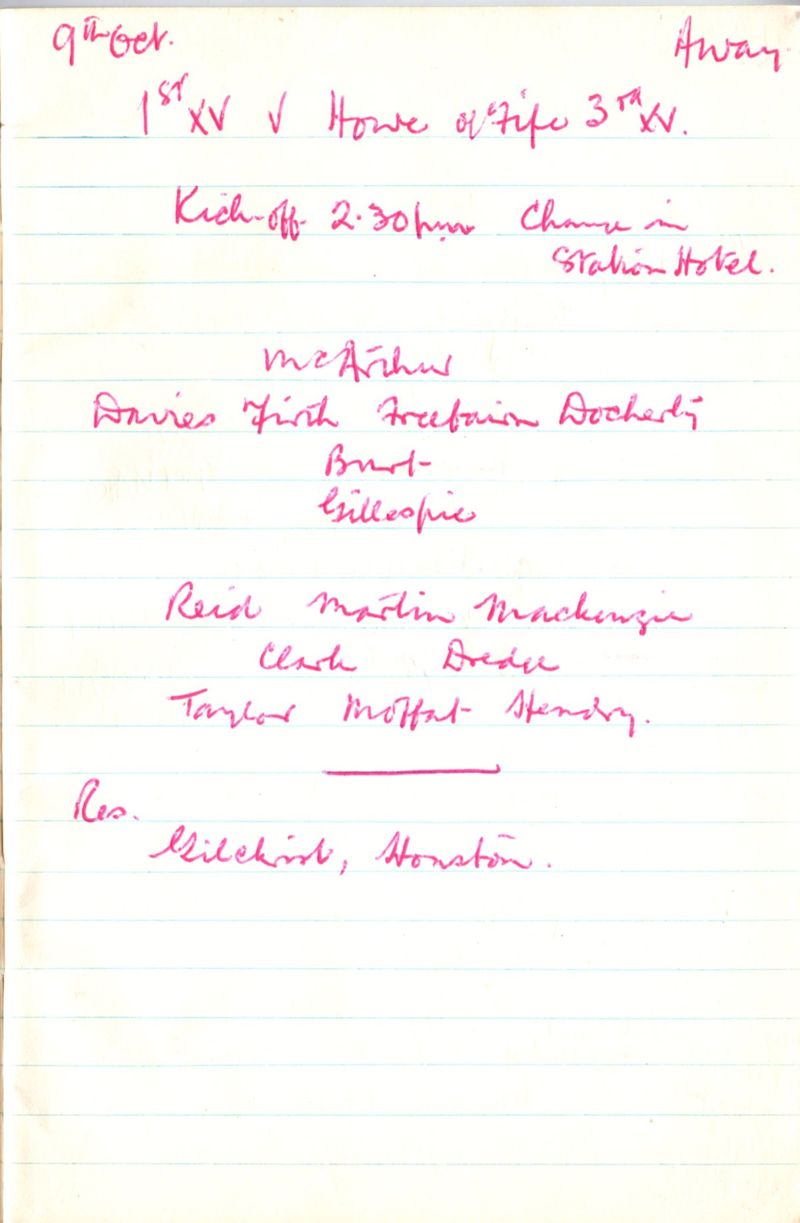 9th Oct. Away
1st XV V Howe of Fife 3rd XV.
Kick-off 2.30pm Change in
Station Hotel.
McArthur
Davies Firth Freebairn Docherty
Burt
Gillespie
Reid Martin Mackenzie
Clark Dredge
Taylor Moffat Hendry.
Res.
Gilchrist, Houston.